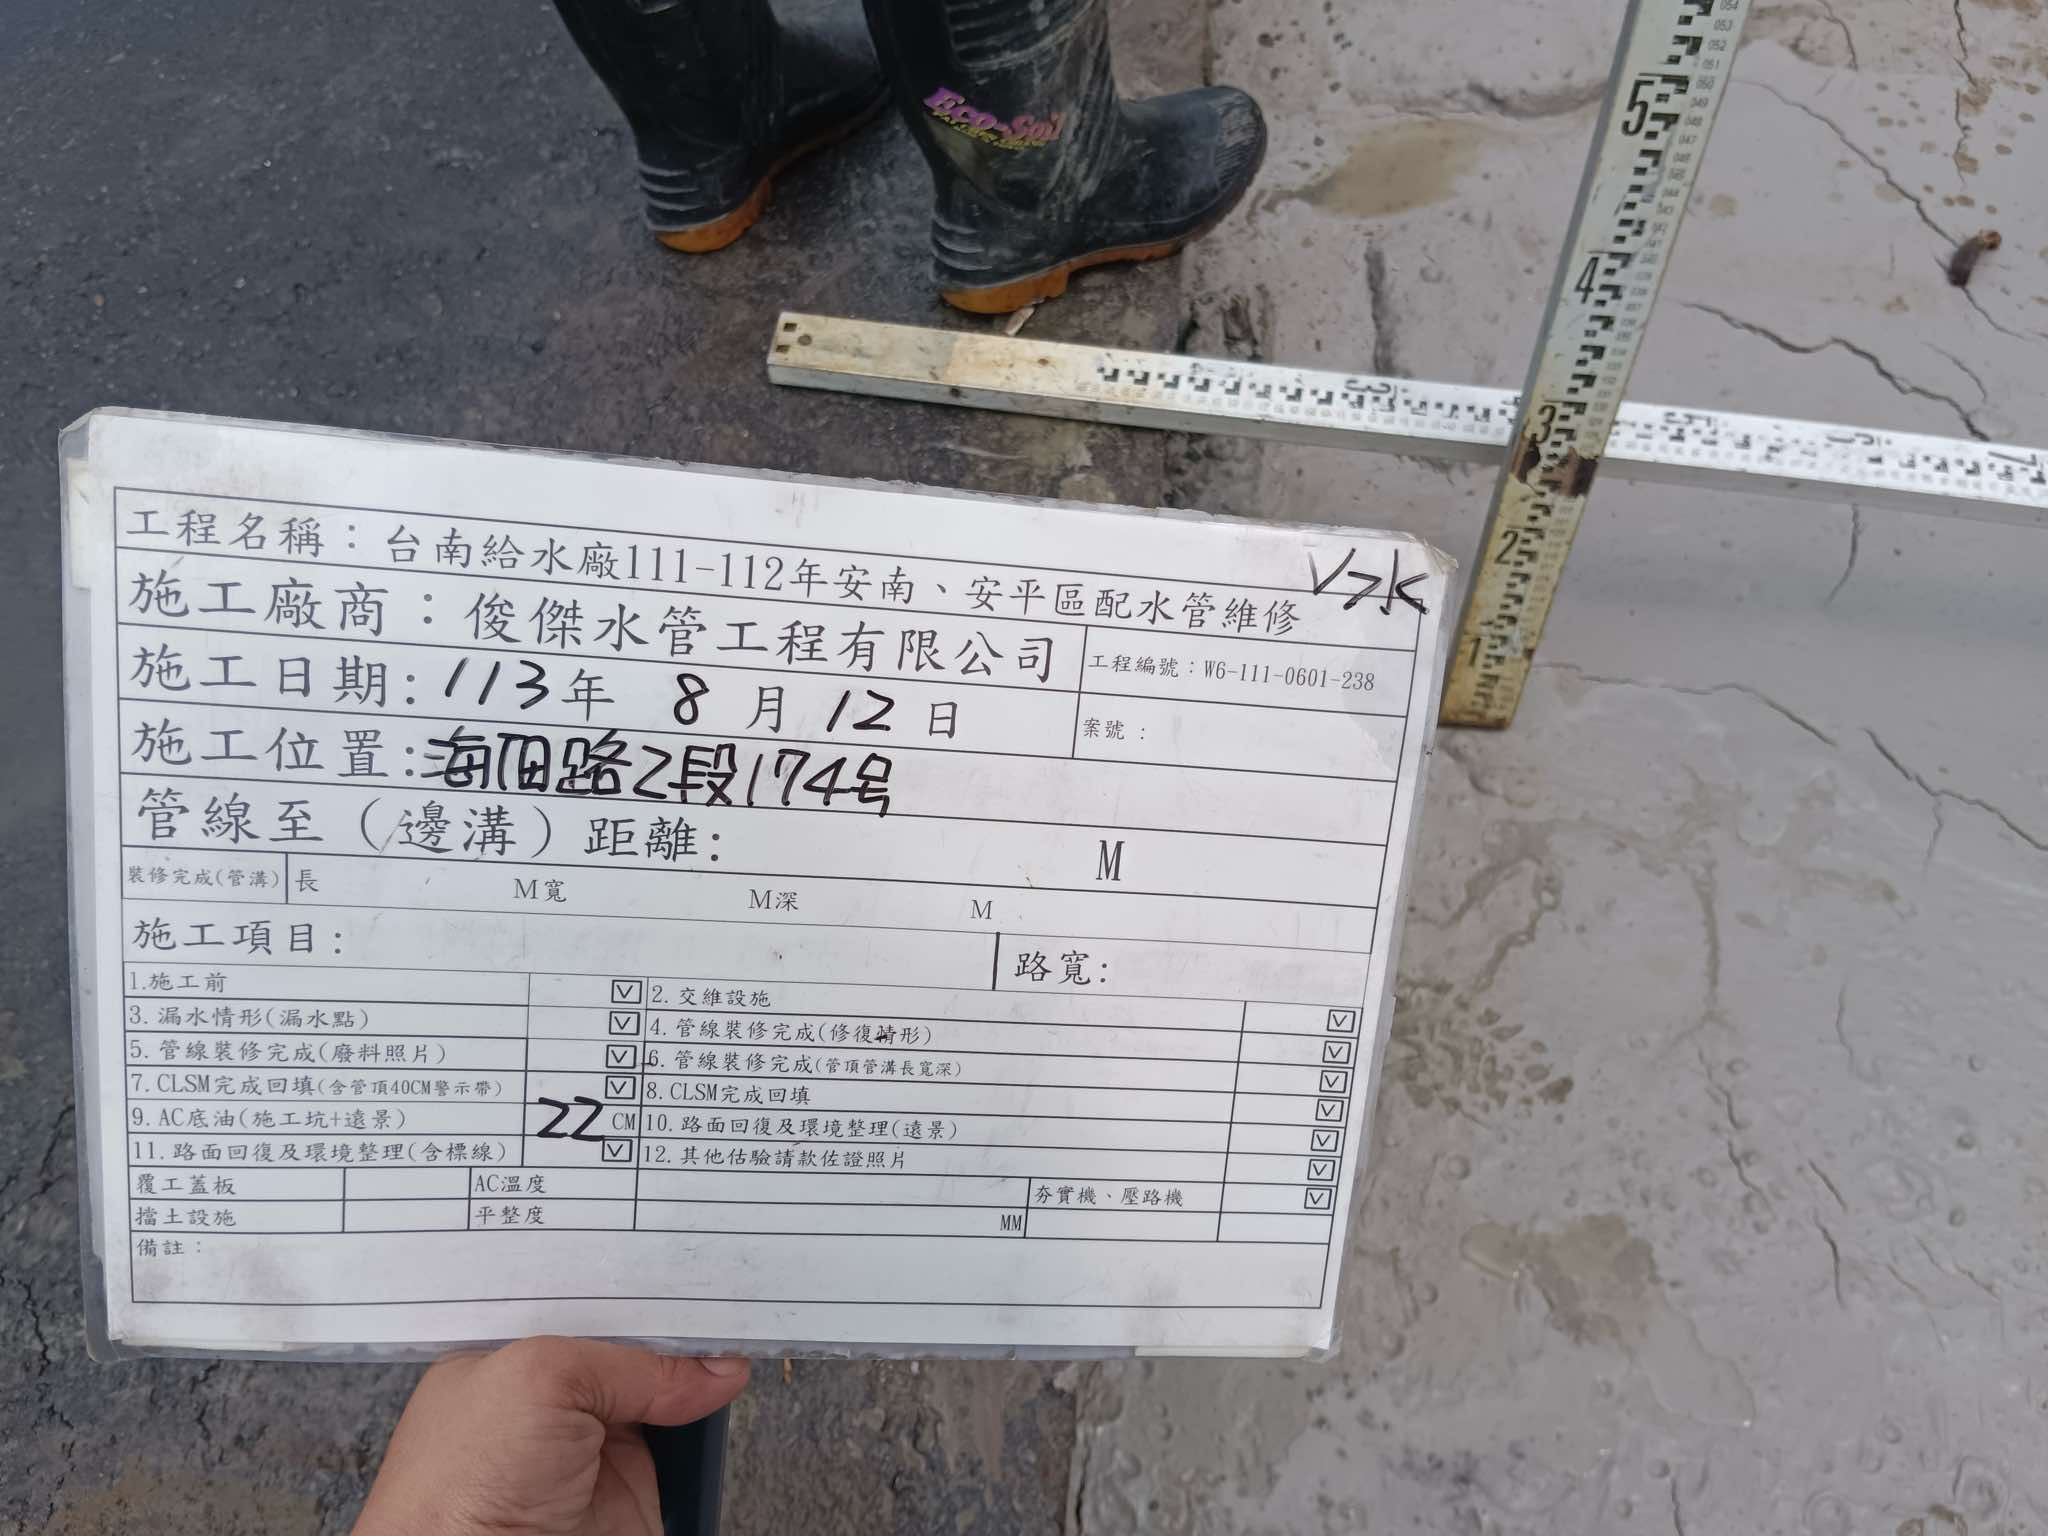 Eco-Soil
5
4
3
2
1
3
5
6
7
工程名稱：台南給水廠111-112年安南、安平區配水管維修
施工廠商：俊傑水管工程有限公司
工程編號：W6-111-0601-238
施工日期：113年 8月 12日
案號：
施工位置：海佃路2段174号
管線至（邊溝）距離： M
裝修完成(管溝) 長 M寬 M深 M
施工項目： 路寬：
1.施工前 ☑ 2.交維設施 ☑
3.漏水情形(漏水點) ☑ 4.管線裝修完成(修復情形) ☑
5.管線裝修完成(廢料照片) ☑ 6.管線裝修完成(管頂管溝長寬深) ☑
7.CLSM完成回填(含管頂40CM警示帶) ☑ 8.CLSM完成回填 ☑
9.AC底油(施工坑+遠景) 22 CM 10.路面回復及環境整理(遠景) ☑
11.路面回復及環境整理(含標線) ☑ 12.其他估驗請款佐證照片 ☑
覆工蓋板 AC溫度 夯實機、壓路機 ☑
擋土設施 平整度 MM
備註：